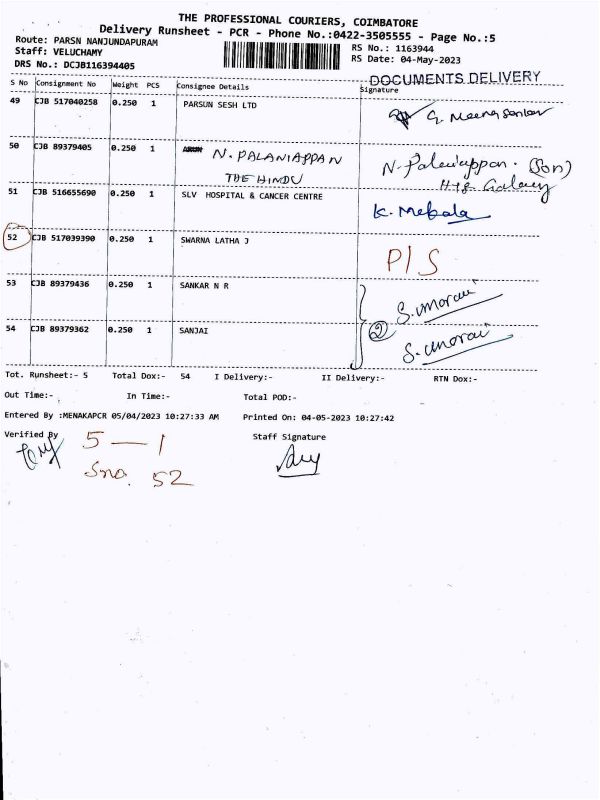 THE PROFESSIONAL COURIERS, COIMBATORE
Delivery Runsheet - PCR - Phone No.:0422-3505555 - Page No.:5
Route: PARSN NANJUNDAPURAM RS No.: 1163944
Staff: VELUCHAMY RS Date: 04-May-2023
DRS No.: DCJB116394405
DOCUMENTS DELIVERY
S No Consignment No Weight PCS Consignee Details Signature
49 CJB 517040258 0.250 1 PARSUN SESH LTD
50 CJB 89379405 0.250 1 N. PALANIAPPAN N. Palaniappan. (Son)
THE HINDU
51 CJB 516655690 0.250 1 SLV HOSPITAL & CANCER CENTRE K. Mebala
52 CJB 517039390 0.250 1 SWARNA LATHA J P/S
53 CJB 89379436 0.250 1 SANKAR N R
2
54 CJB 89379362 0.250 1 SANJAI
Tot. Runsheet:- 5 Total Dox:- 54 I Delivery:- II Delivery:- RTN Dox:-
Out Time:- In Time:- Total POD:-
Entered By :MENAKAPCR 05/04/2023 10:27:33 AM Printed On: 04-05-2023 10:27:42
Verified By 5 — 1 Staff Signature
Sno. 52